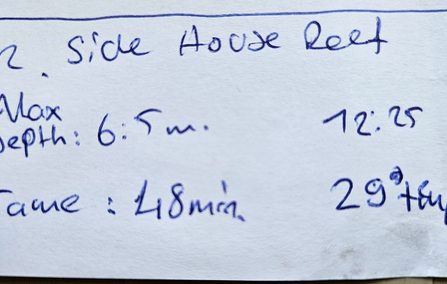 2. Side House Reef
Max
Depth: 6:5m. 12:25
Tame : 48min 29° temp